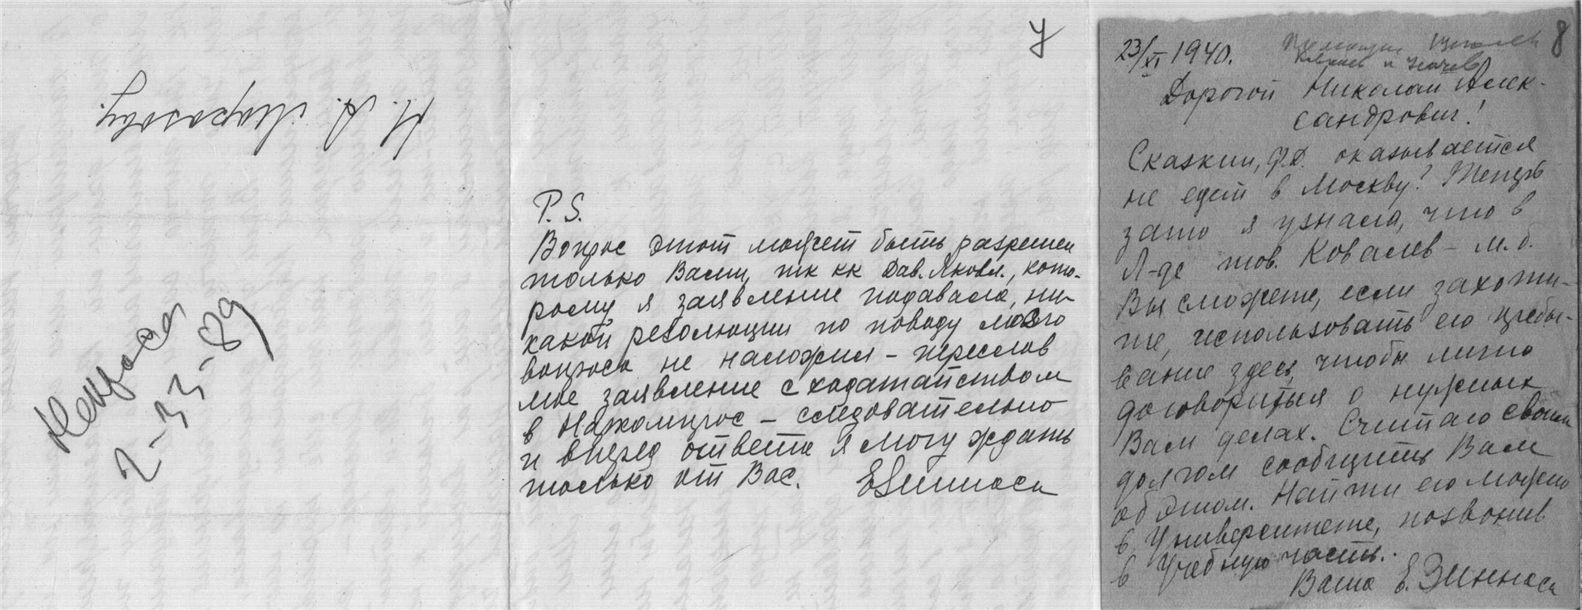 Н. А. Марахову.
Некрасов
2-33-89
7
P.S.
Вопрос этот может быть разрешен
только Вами, тк кк Дав. Яковл., кото-
рому я заявление подавала, ни-
какой резолюции по поводу моего
вопроса не наложил – переслав
мое заявление с ходатайством
в Наркомпрос – следовательно
и вперед ответа я могу ждать
только от Вас.
8
23/XI 1940.
Дорогой Николай Алек-
сандрович!
Сказкин, Ф.Д. оказывается
не едет в Москву? Теперь
зато я узнала, что в
Л-де тов. Ковалев – м.б.
Вы сможете, если захоти-
те, использовать его пребы-
вание здесь, чтобы лично
договориться о нужных
Вам делах. Считаю своим
долгом сообщить Вам
об этом. Найти его можно
в Университете, позвонив
в Учебную часть.
Ваша Е. Эшнаса